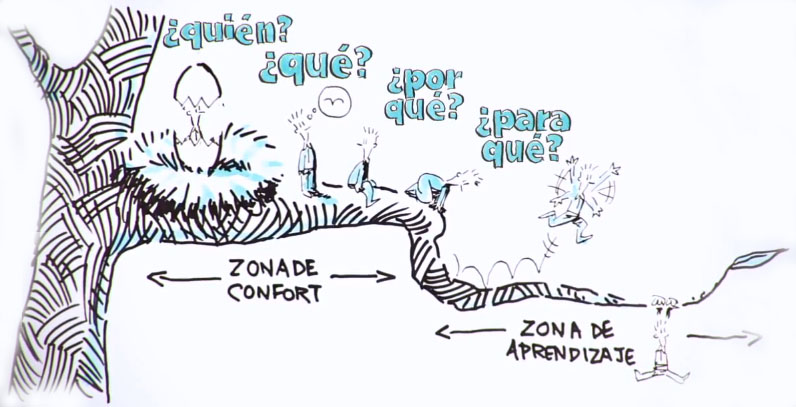 ¿quién?
¿qué?
¿por
qué?
¿para
qué?
ZONA DE
CONFORT
ZONA DE
APRENDIZAJE